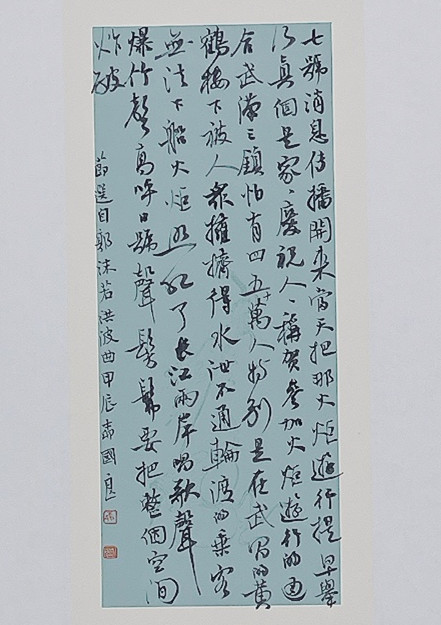 七號消息傳播開來當天把那火炬遊行提早舉
行真個是家、慶祝人、稱賀參加火炬遊行的通
合武漢三鎮怕有四五十萬人特別是在武昌的黃
鶴樓下被人衆擁擠得水泄不通輪渡的乘客
無法下船火炬照紅了長江兩岸唱歌聲
爆竹聲高呼口號聲髣髴要把整個空間
炸破
節選自郭沫若洪波曲甲辰春國良